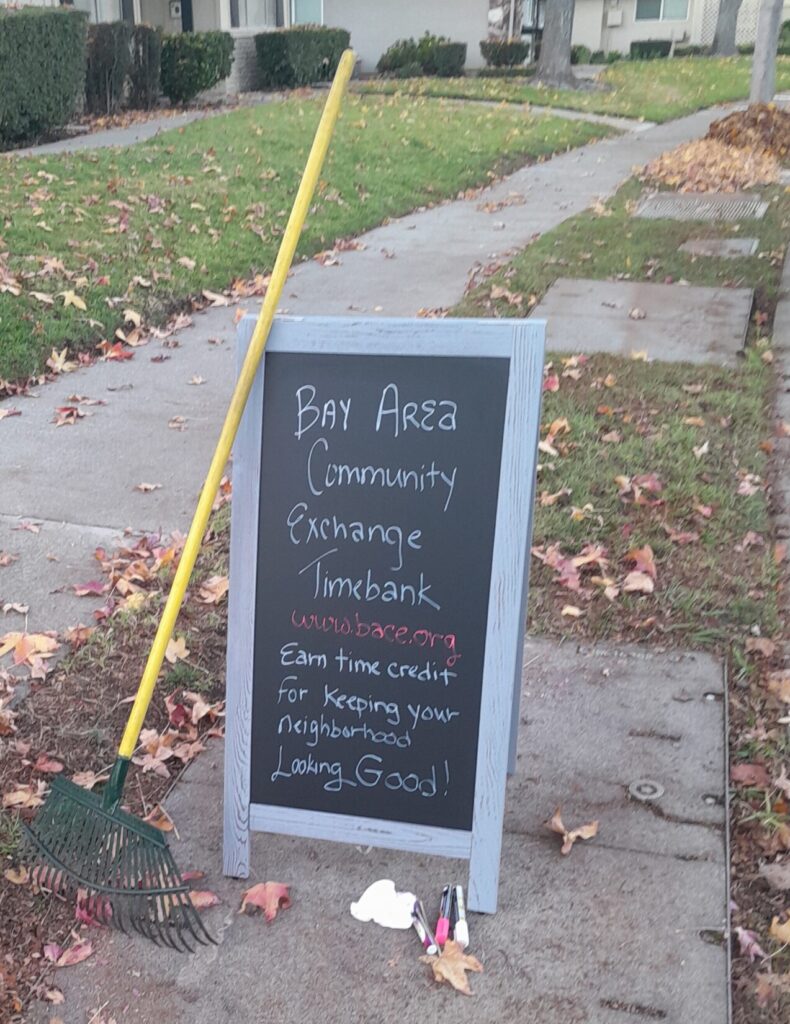 BAY AREa
Community
Exchange
Timebank
www.bace.org
Earn time credit
for keeping your
neighborhood
Looking Good!